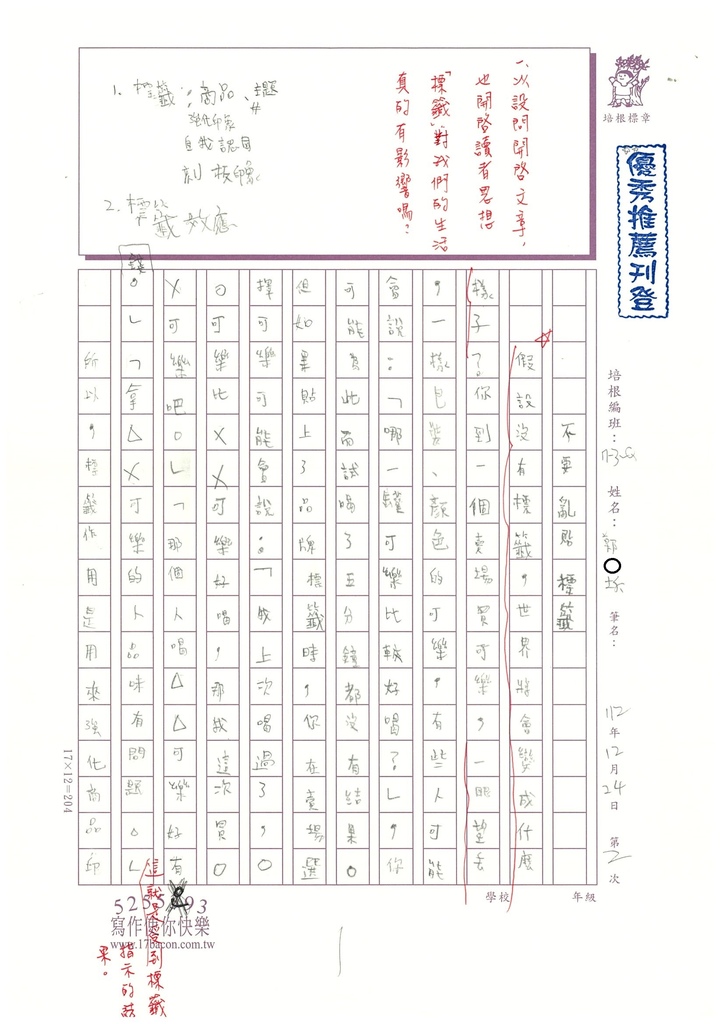 培根標章
優秀推薦刊登
一、以設問開啓文章，
也開啓讀者思想
「標籤」對我們的生活
真的有影響嗎？
1. 標籤：商品、主題
自我認同
刻板印象
2. 標籤效應
培根編班：
姓名：郭
筆名：
112年12月24日 第2次
學校 年級
不要亂貼標籤
假設沒有標籤，世界將會變成什麼
樣子？你到一個賣場買可樂，一眼望去
，一樣包裝、顏色的可樂有些人可能
會說：「哪一罐可樂比較好喝？」，你
可能為此而試喝了五分鐘都沒有結果。
但如果貼上了品牌標籤時，你在賣場選
擇可樂可能會說：「欸上次喝過了，○
○可樂比ㄨㄨ可樂好喝，那我這次買○
ㄨ可樂吧。」「那個人喝△△可樂好有
。」「拿△ㄨ可樂的人品味有問題。」
所以，標籤作用是用來強化商品印
錢
這就是受到標籤
指示的結
果。
17×12=204
寫作使你快樂
www.17bacon.com.tw
1